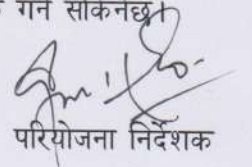 गर्न सकिनेछ।
परियोजना निर्देशक